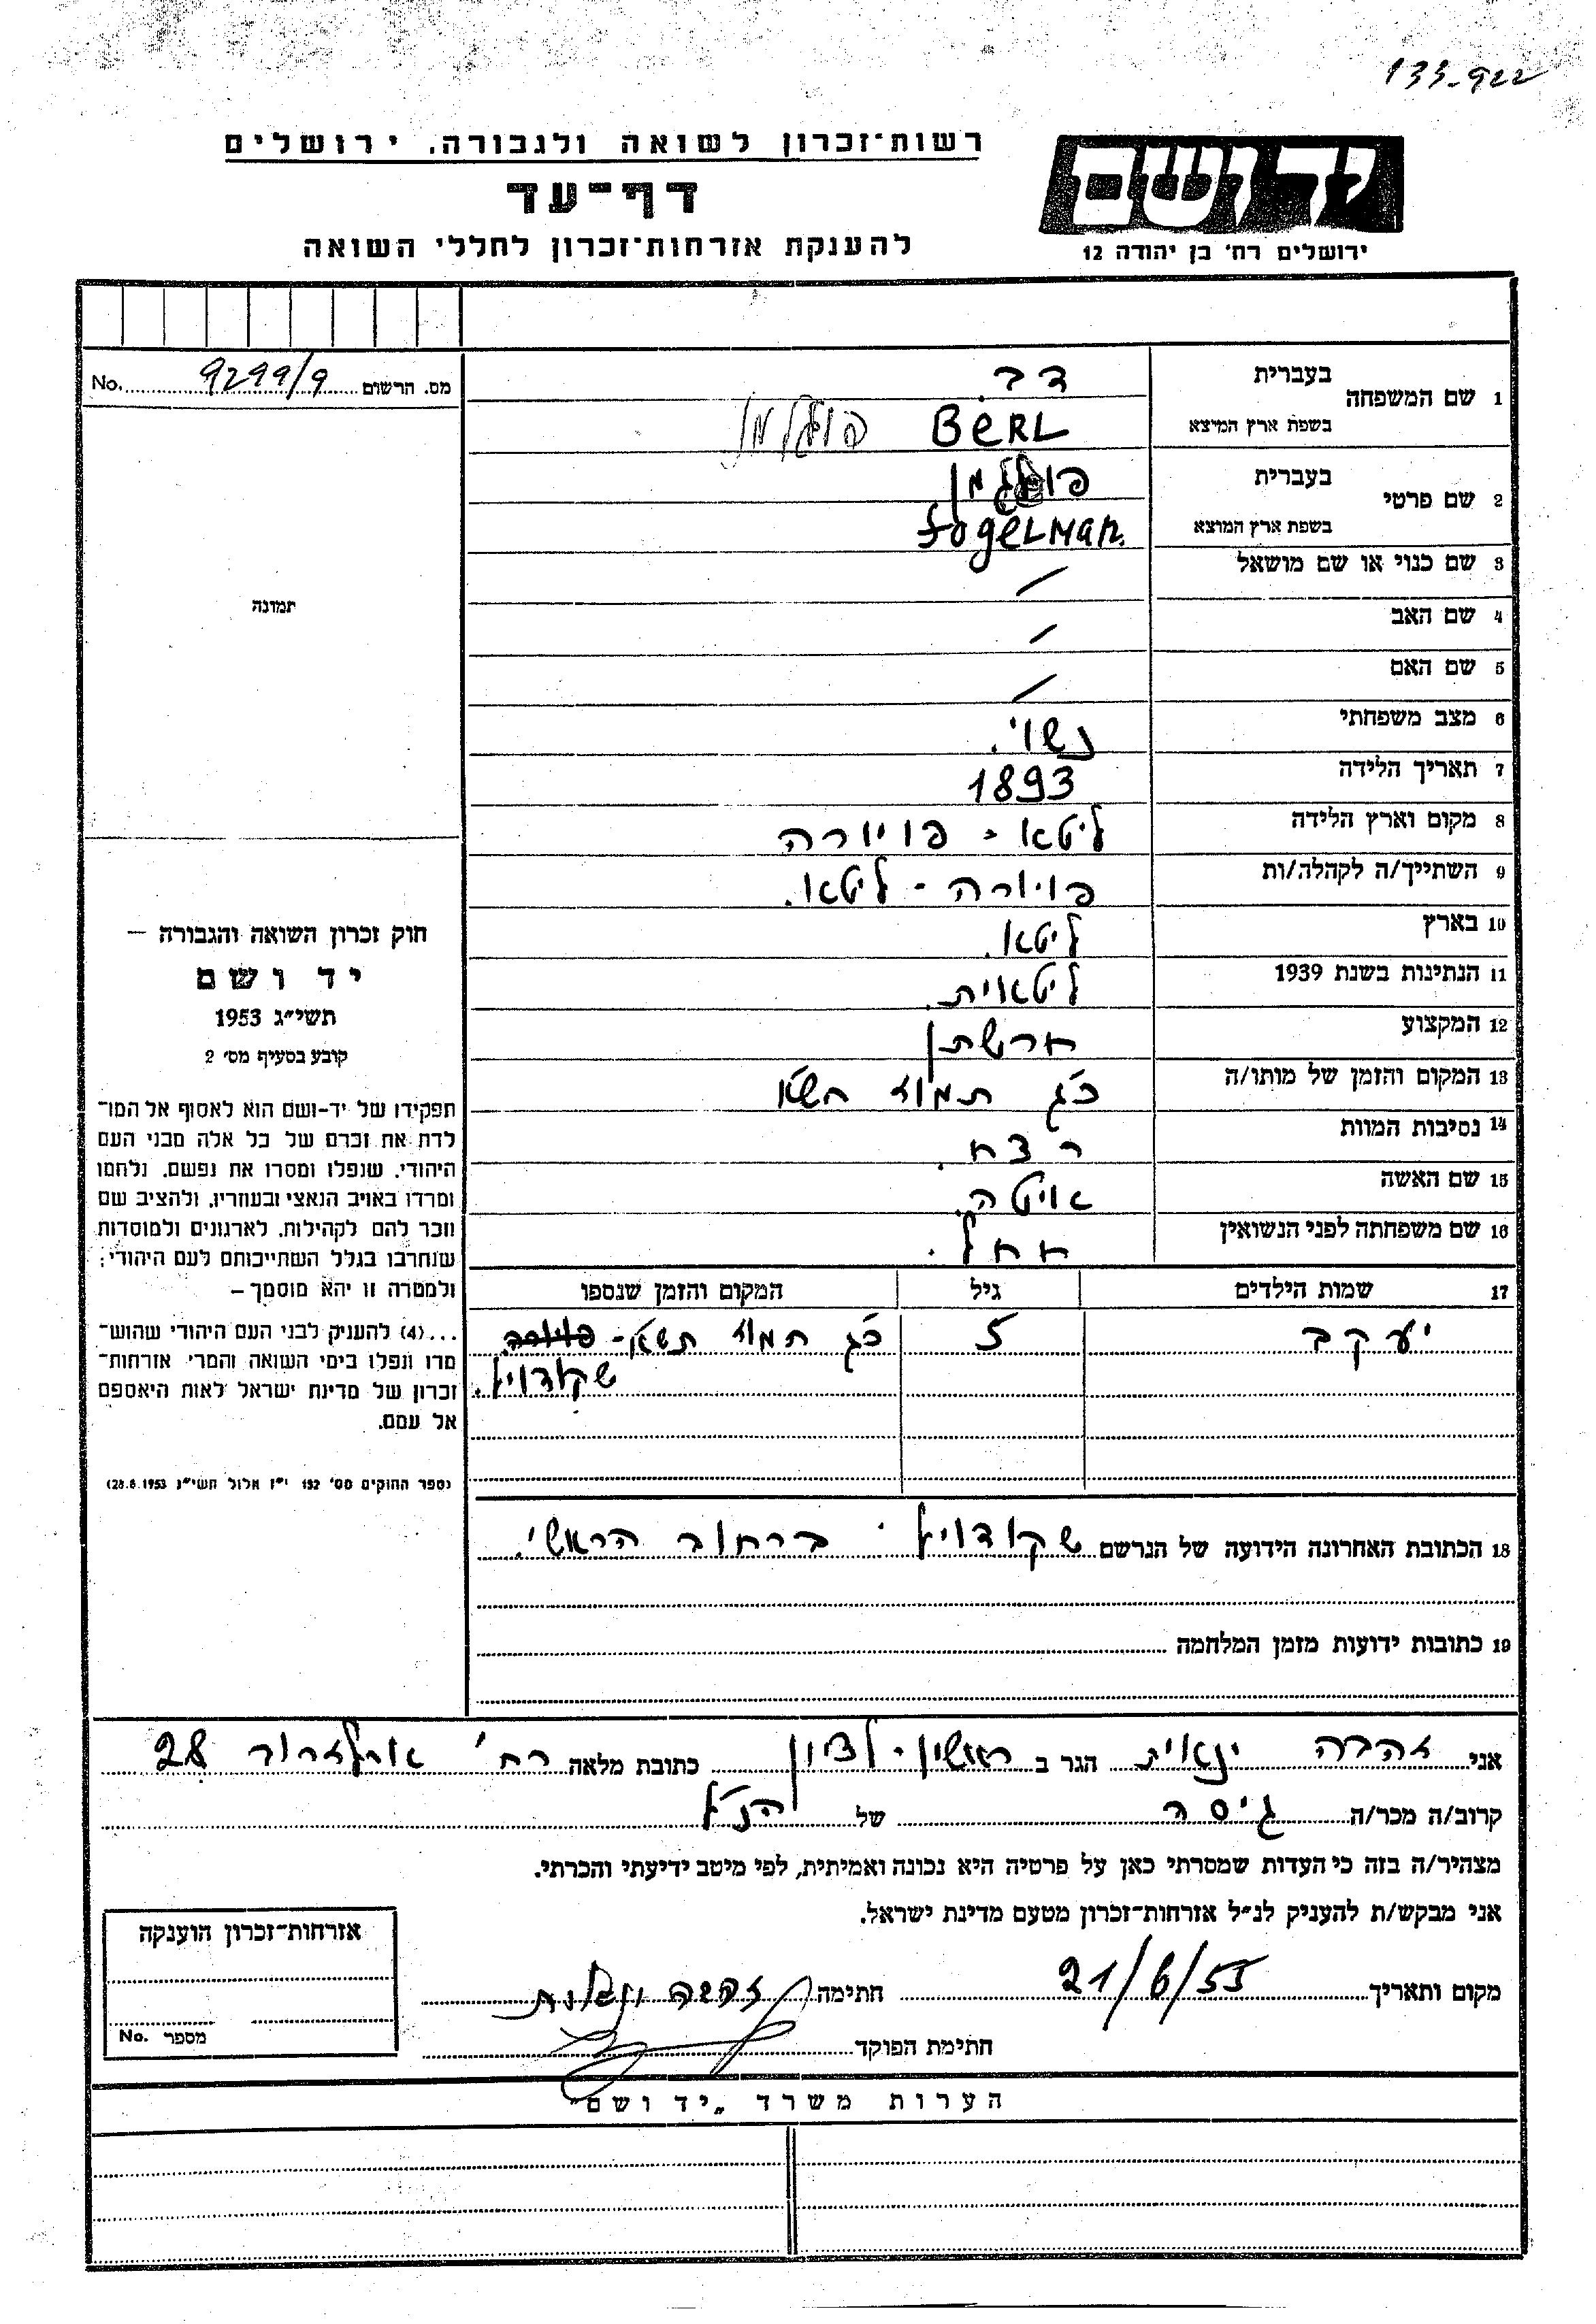 133-922
רשות־זכרון לשואה ולגבורה. ירושלים
דף־עד
להענקת אזרחות־זכרון לחללי השואה
יד ושם
ירושלים רח׳ בן יהודה 12
No. 9299/9 מס. הרשום
תמונה
חוק זכרון השואה והגבורה —
יד ושם
תשי״ג 1953
קובע בסעיף מס׳ 2
תפקידו של יד-ושם הוא לאסוף אל המו־
לדת את זכרם של כל אלה מבני העם
היהודי, שנפלו ומסרו את נפשם, נלחמו
ומרדו באויב הנאצי ובעוזריו, ולהציב שם
וזכר להם לקהילות, לארגונים ולמוסדות
שנחרבו בגלל השתייכותם לעם היהודי;
ולמטרה זו יהא מוסמך —
...(4) להעניק לבני העם היהודי שהוש־
מדו ונפלו בימי השואה והמרי אזרחות־
זכרון של מדינת ישראל לאות היאספם
אל עמם.
(ספר החוקים מס׳ 132 י״ז אלול תשי״ג 28.8.1953)
1 שם המשפחה בעברית דב.
בשפת ארץ המיצא BeRL פוגלמן
2 שם פרטי בעברית פוגלמן
בשפת ארץ המוצא fogeLMan.
3 שם כנוי או שם מושאל /
4 שם האב /
5 שם האם /
6 מצב משפחתי נשוי.
7 תאריך הלידה 1893
8 מקום וארץ הלידה ליטא - פויורה
9 השתייך/ה לקהלה/ות פויורה - ליטא.
10 בארץ ליטא.
11 הנתינות בשנת 1939 ליטאית.
12 המקצוע חרשתן
13 המקום והזמן של מותו/ה כ״ג תמוז תש״א
14 נסיבות המוות רצח.
15 שם האשה איטה.
16 שם משפחתה לפני הנשואין
17 שמות הילדים גיל המקום והזמן שנספו
יעקב 5 כ״ג תמוז תש״א- פויורה.
שקודויל.
18 הכתובת האחרונה הידועה של הנרשם שקודויל - ברחוב הראשי.
19 כתובות ידועות מזמן המלחמה
אני זהבה ינאית הגר ב ראשון-לציון כתובת מלאה רח׳ ארלוזרוב 28
קרוב/ה מכר/ה גיסה של הנ״ל
מצהיר/ה בזה כי העדות שמסרתי כאן על פרטיה היא נכונה ואמיתית, לפי מיטב ידיעתי והכרתי.
אני מבקש/ת להעניק לנ״ל אזרחות־זכרון מטעם מדינת ישראל.
מקום ותאריך 21/6/55 חתימה
חתימת הפוקד
אזרחות־זכרון הוענקה
מספר No.
הערות משרד „יד ושם״